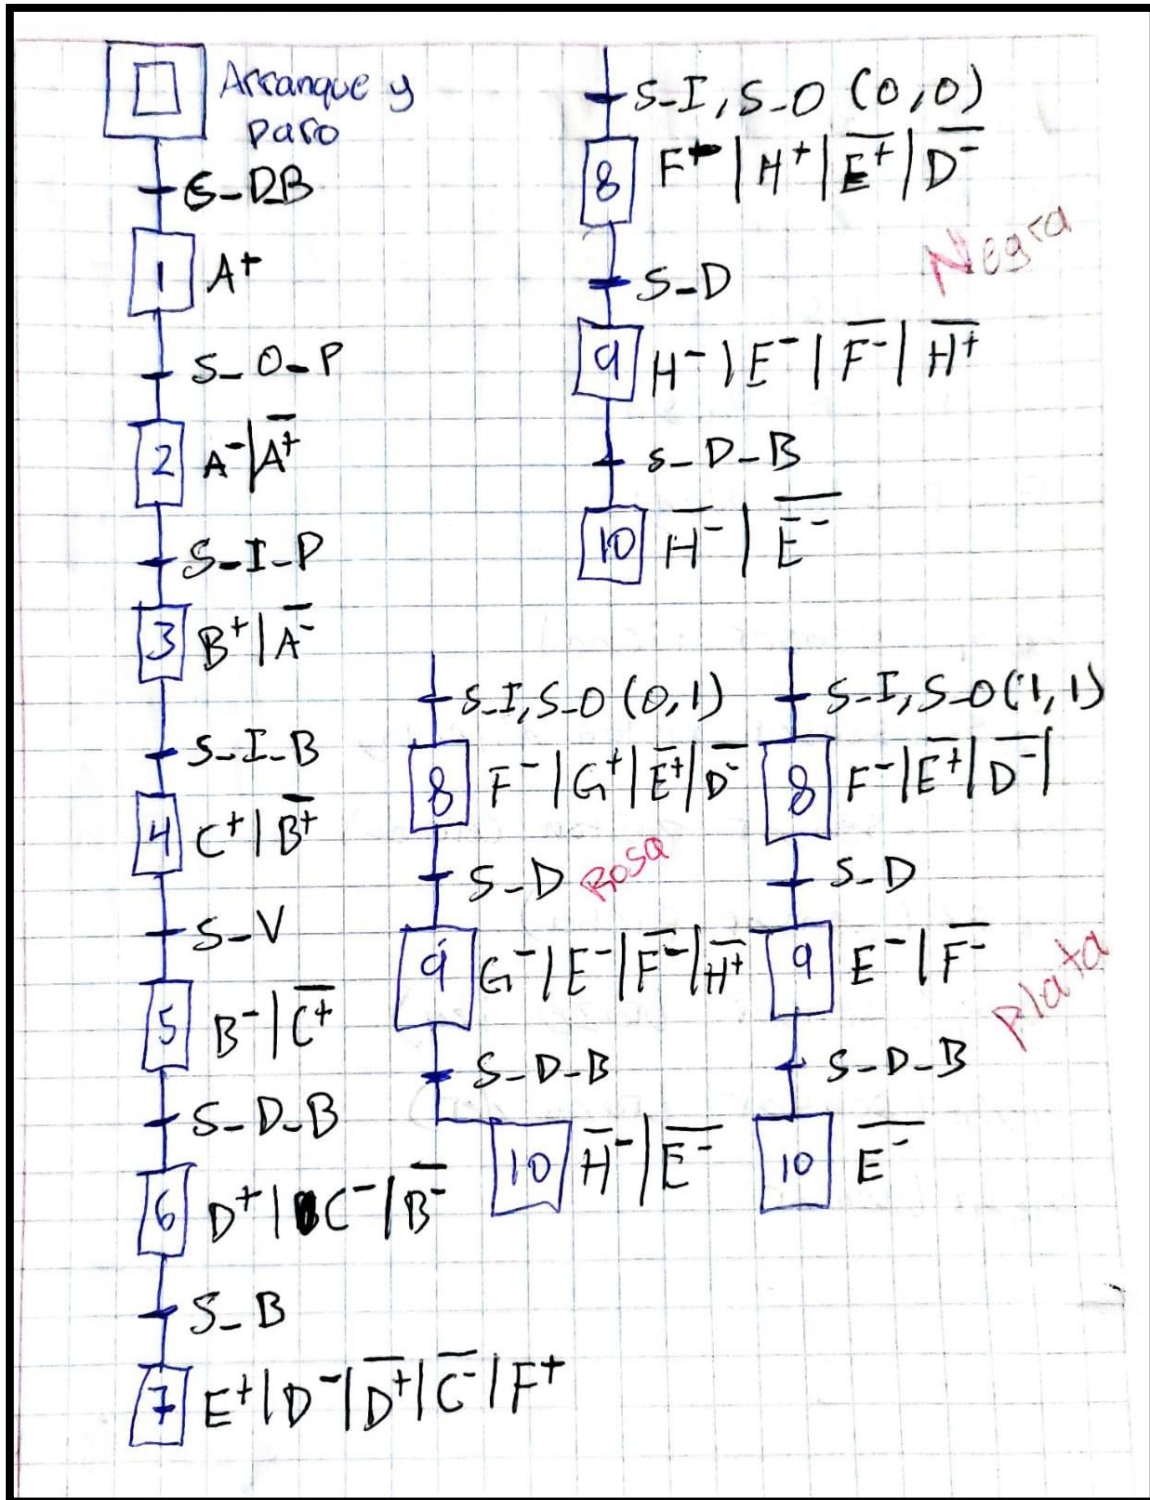 Arranque y
paro
S-DB
1 A⁺
S-O-P
2 A⁻|A̅⁺
S-I-P
3 B⁺|A̅⁻
S-I-B
4 C⁺|B̅⁺
S-V
5 B⁻|C̅⁺
S-D-B
6 D⁺|C⁻|B̅⁻
S-B
7 E⁺|D⁻|D̅⁺|C̅⁻|F⁺
S-I, S-O (0,0)
8 F⁺|H⁺|E̅⁺|D̅⁻
Negra
S-D
9 H⁻|E⁻|F̅⁻|H̅⁺
S-D-B
10 H̅⁻|E̅⁻
S-I, S-O (0,1)
8 F⁻|G⁺|E̅⁺|D̅⁻
S-D Rosa
9 G⁻|E⁻|F̅⁻|H̅⁺
S-D-B
10 H̅⁻|E̅⁻
S-I, S-O (1,1)
8 F⁻|E̅⁺|D̅⁻|
S-D
9 E⁻|F̅⁻
Plata
S-D-B
10 E̅⁻